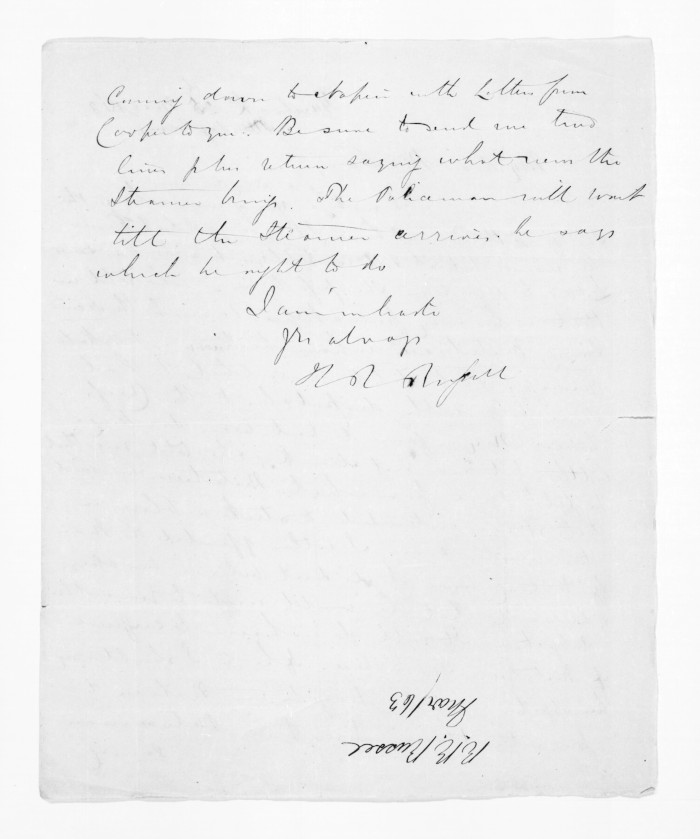 Coming down to Napier with Letters from
Cooper to you. Be sure to send me two
lines pher return saying what news the
Steamer brings. The Policeman will wait
till the Steamer arrives he says
which he right to do
I am in haste
Yrs always
H R Russell
H. R. Russell
Mar/63